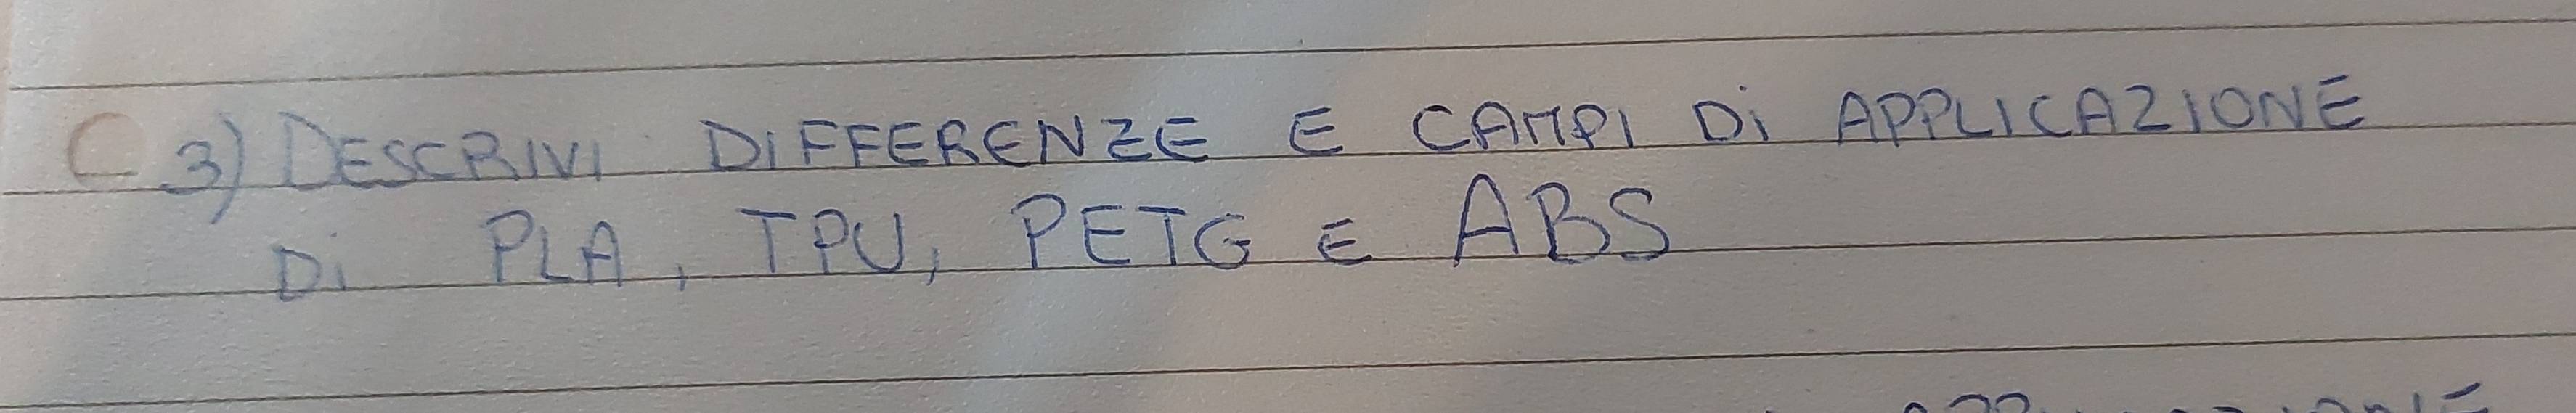 C 3) DESCRIVI DIFFERENZE E CAMPI Di APPLICAZIONE
Di PLA, TPU, PETG E ABS